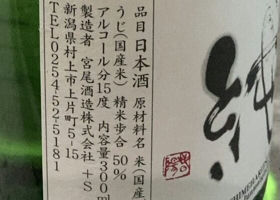 品目 日本酒 原材料名 米(国産
うじ(国産米) 精米歩合 50%
アルコール分15度 内容量300m
製造者 宮尾酒造株式会社 +S
新潟県村上市上片町5-15
TEL0254-52-5181
純